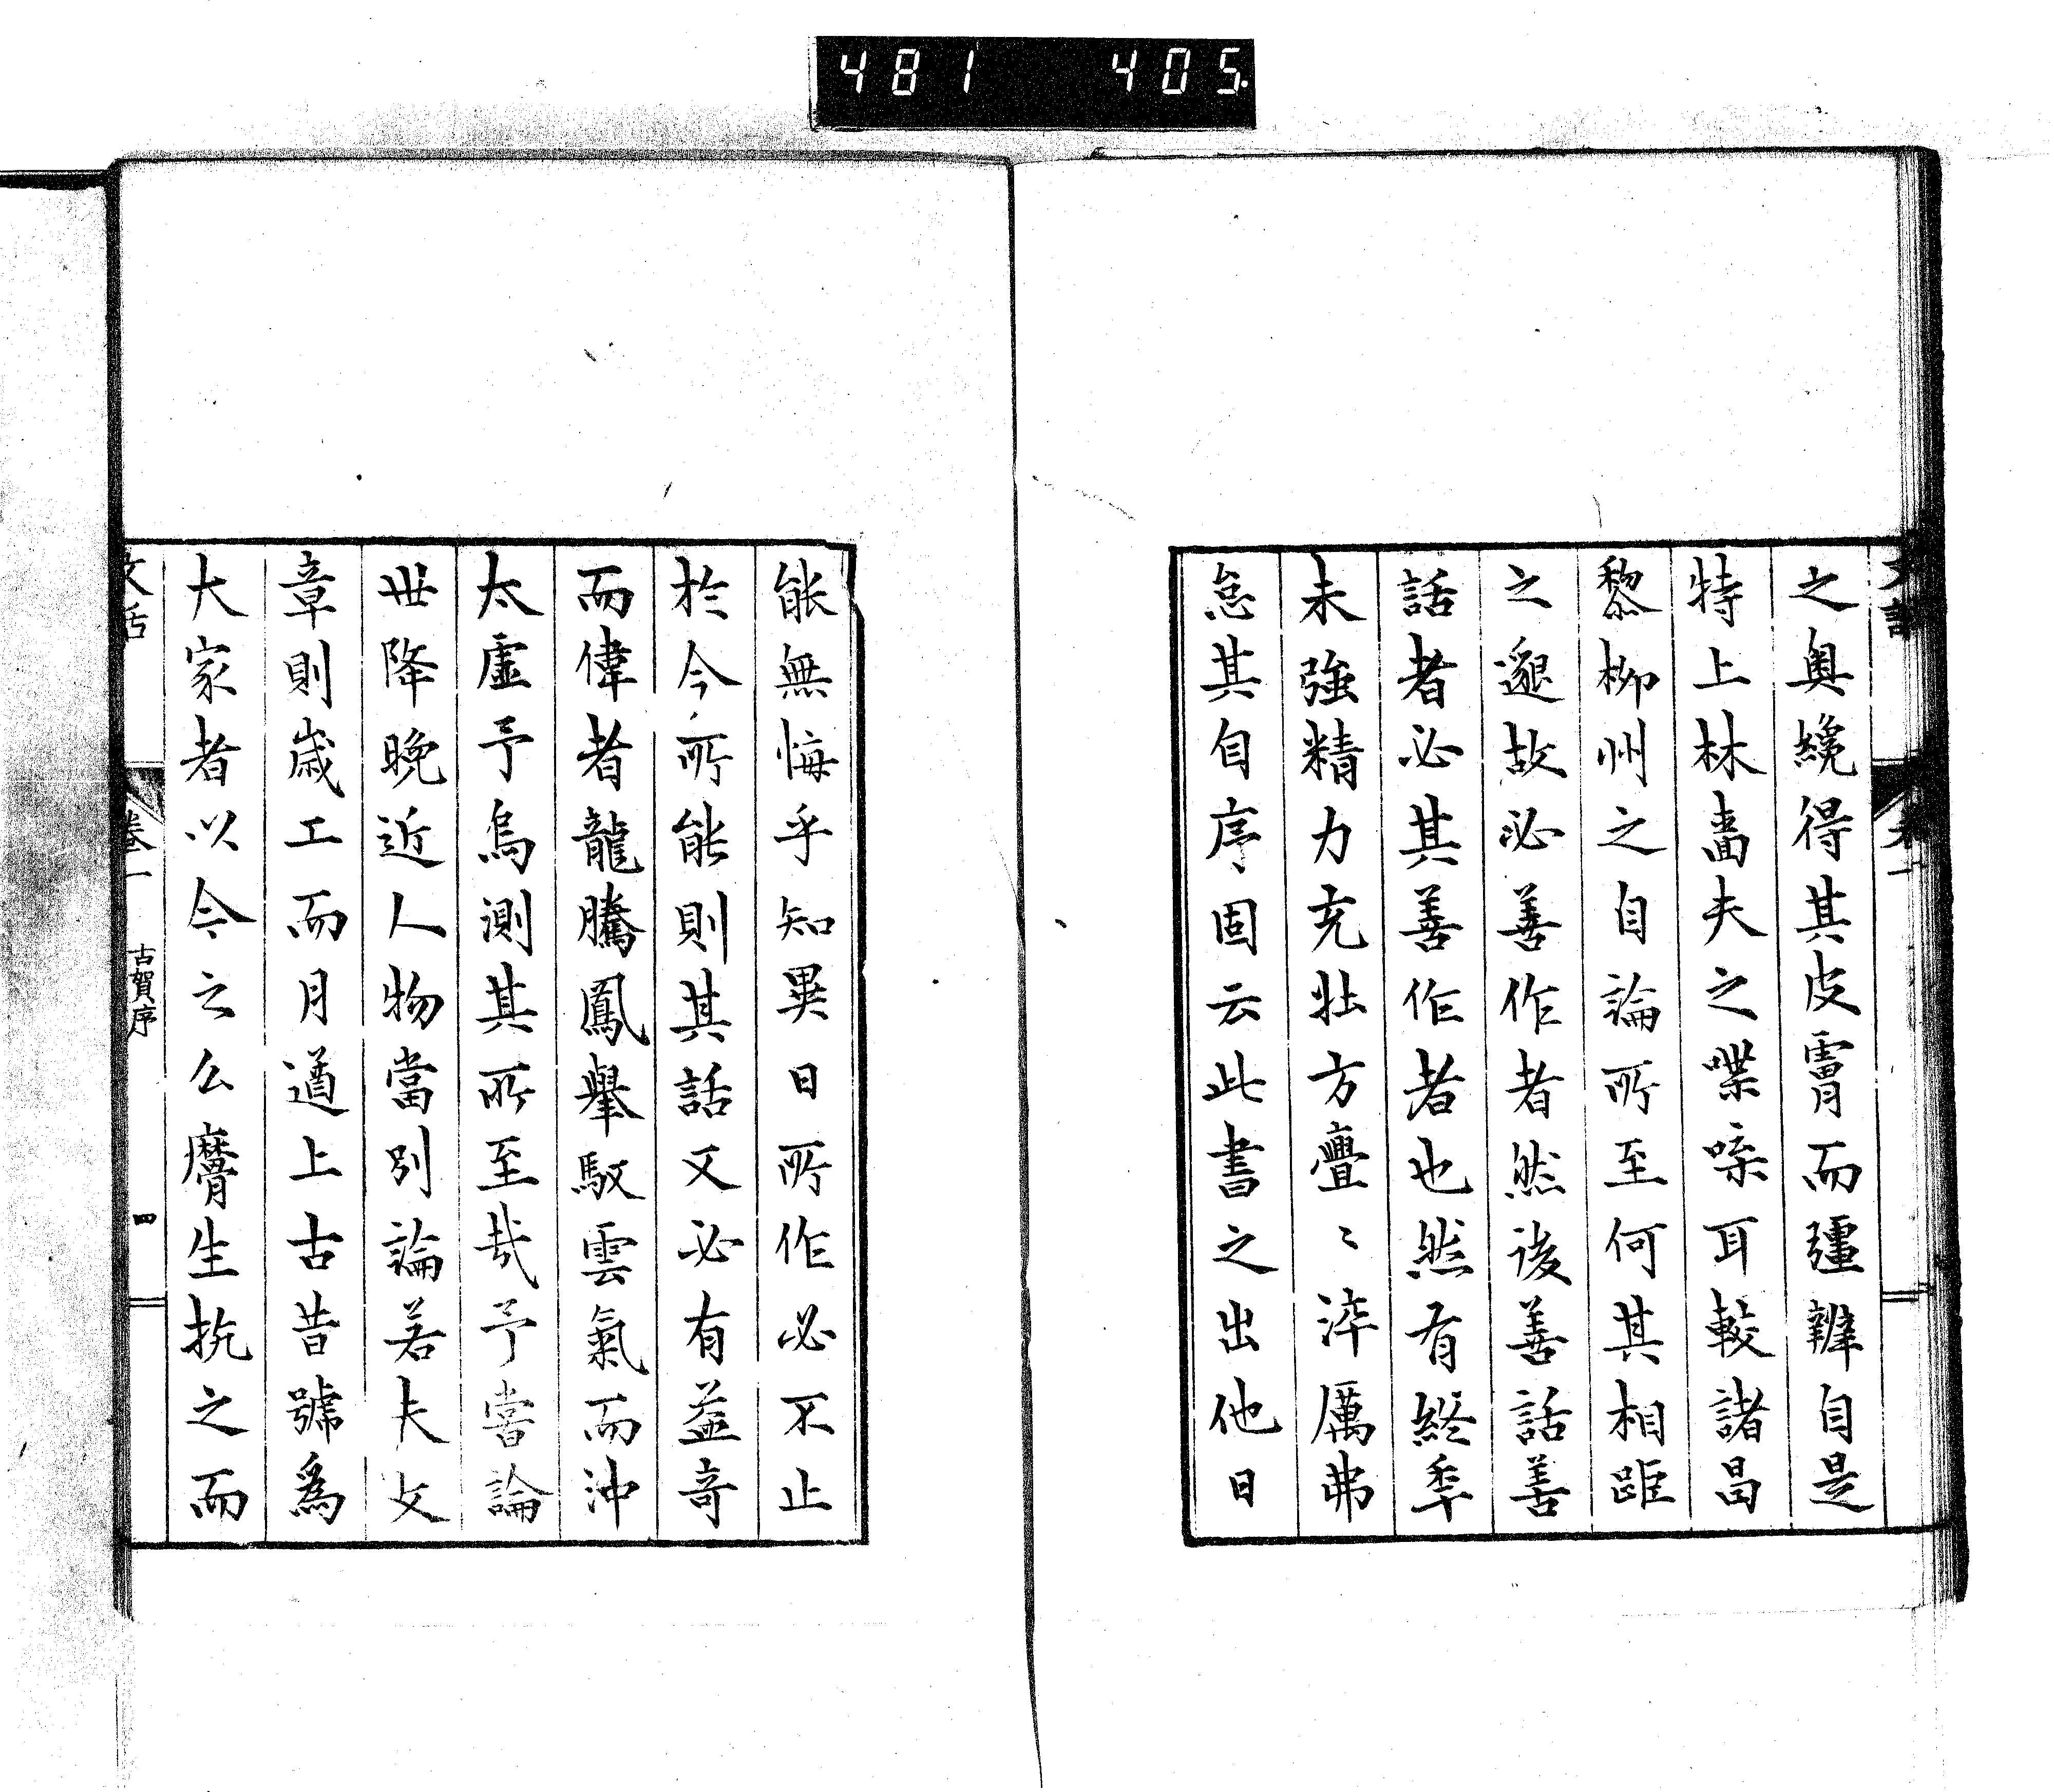 481 405.
文話 卷一
之奥纔得其皮膚而彊辨自是
特上林嗇夫之喋喋耳較諸昌
黎柳州之自論所至何其相距
之邈故必善作者然後善話善
話者必其善作者也然有終季
未強精力充壮方亹〻淬厲弗
怠其自序固云此書之出他日
能無悔乎知異日所作必不止
於今所能則其話又必有益奇
而偉者龍騰鳳舉馭雲氣而沖
太虛予烏測其所至哉予嘗論
世降晚近人物當別論若夫文
章則歳工而月遒上古昔號爲
大家者以今之么麿生抗之而
文話 卷一 古賀序 四